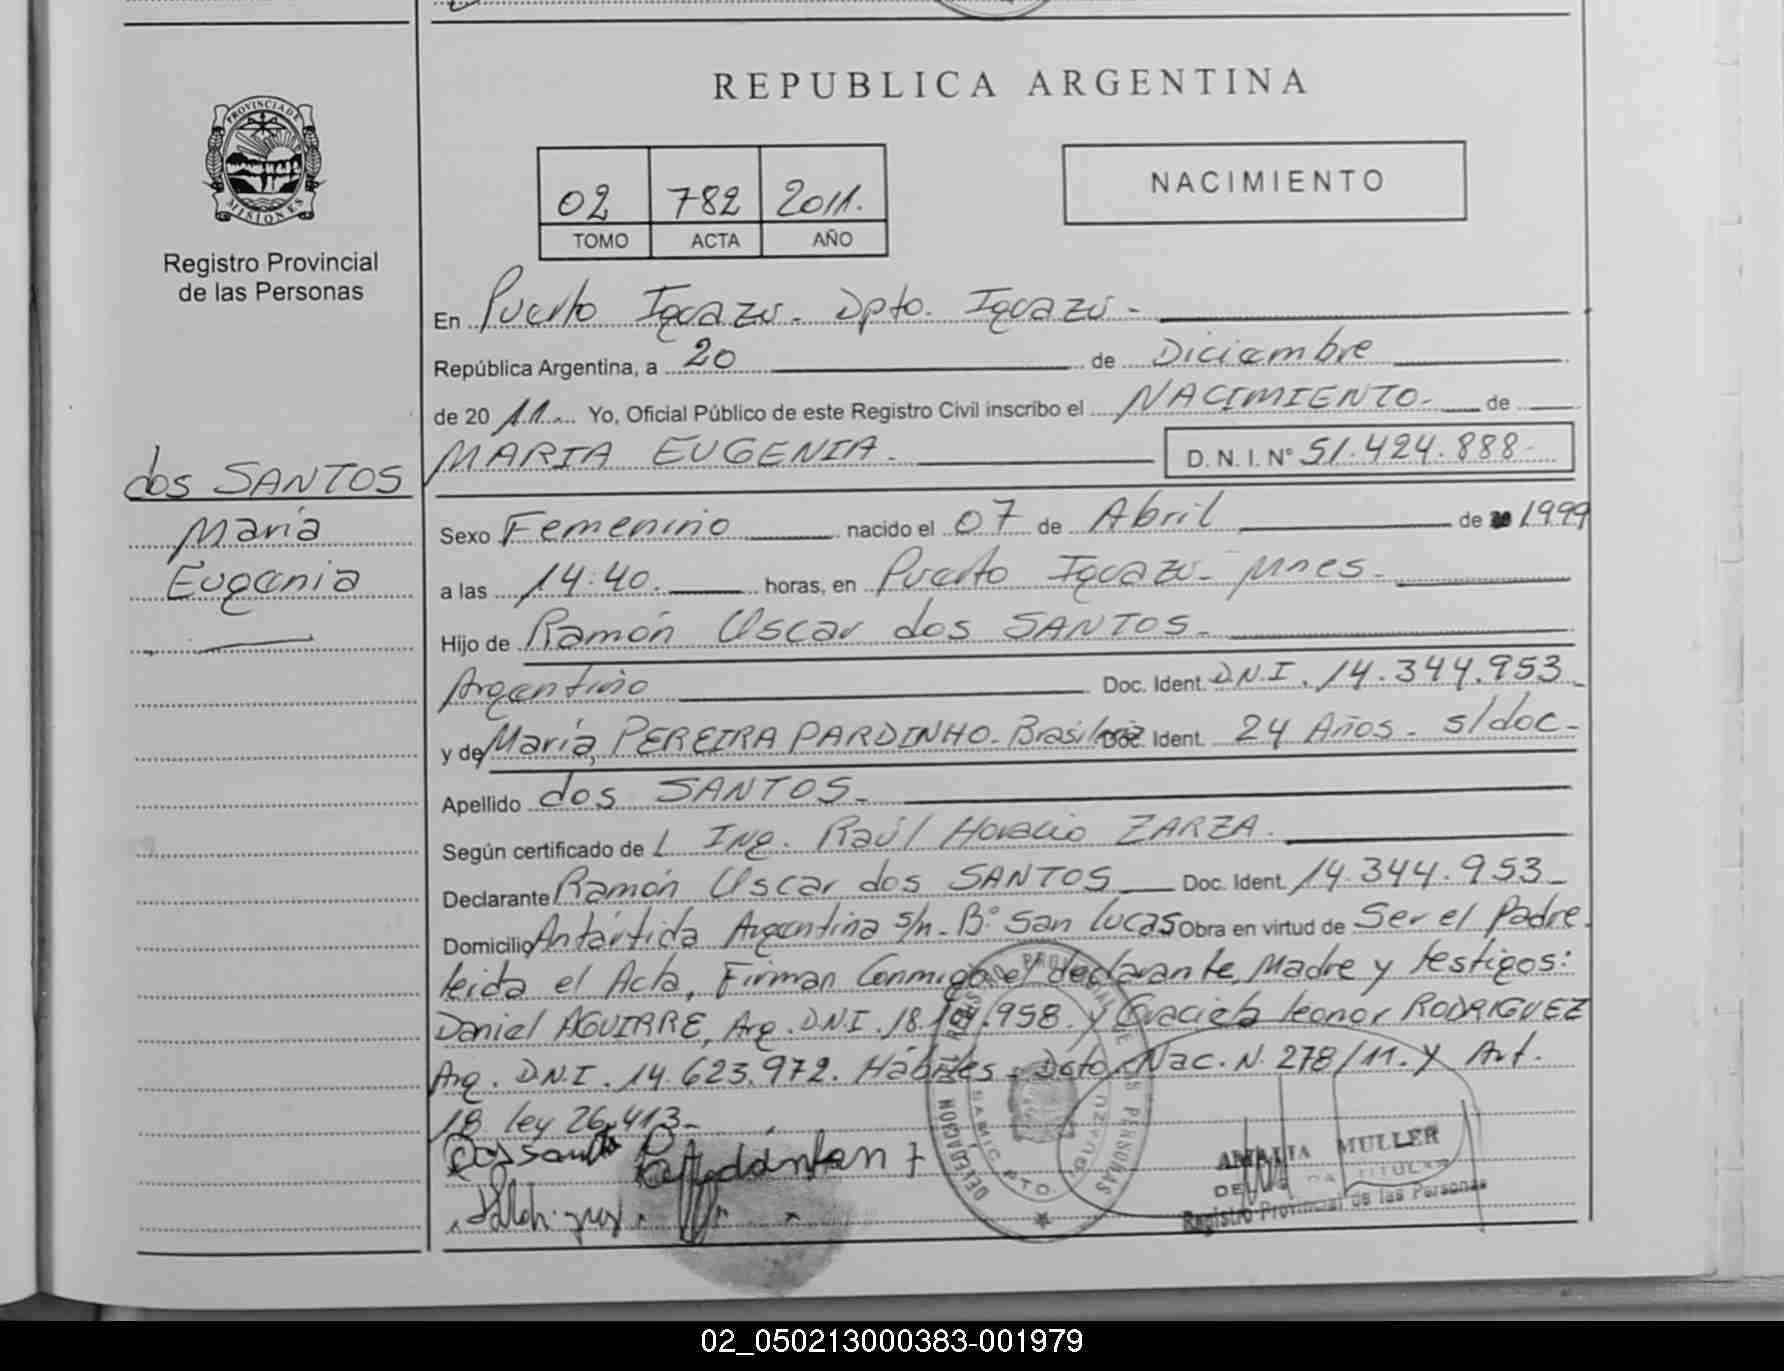 REPUBLICA ARGENTINA
PROVINCIA DE
MISIONES
Registro Provincial
de las Personas
02 782 2011.
TOMO ACTA AÑO
NACIMIENTO
En Puerto Iguazú - Dpto. Iguazú -
República Argentina, a 20 de Diciembre
de 20 11 Yo, Oficial Público de este Registro Civil inscribo el NACIMIENTO. de
MARIA EUGENIA. D. N. I. N° 51.424.888-
dos SANTOS
María
Eugenia
Sexo Femenino nacido el 07 de Abril de 1999
a las 14:40. horas, en Puerto Iguazú - Mnes.
Hijo de Ramón Oscar dos SANTOS.
Argentino Doc. Ident. D.N.I. 14.344.953
y de María, PEREIRA PARDINHO. Brasilera Doc. Ident. 24 Años - s/doc-
Apellido dos SANTOS.
Según certificado de L Ing. Raúl Horacio ZARZA.
Declarante Ramón Oscar dos SANTOS Doc. Ident. 14.344.953
Domicilio Antártida Argentina s/n - B° San Lucas Obra en virtud de Ser el Padre.
leida el Acta, Firman Conmigo el declarante, Madre y testigos:
Daniel AGUIRRE, Arg. D.N.I. 18. .958. y Graciela Leonor RODRIGUEZ
Arg. D.N.I. 14.623.972. Hábiles - Dcto. Nac. N. 278/11. Y Art.
18 ley 26.413-
AMALIA MULLER
DELEGADA TITULAR
Registro Provincial de las Personas
02_050213000383-001979